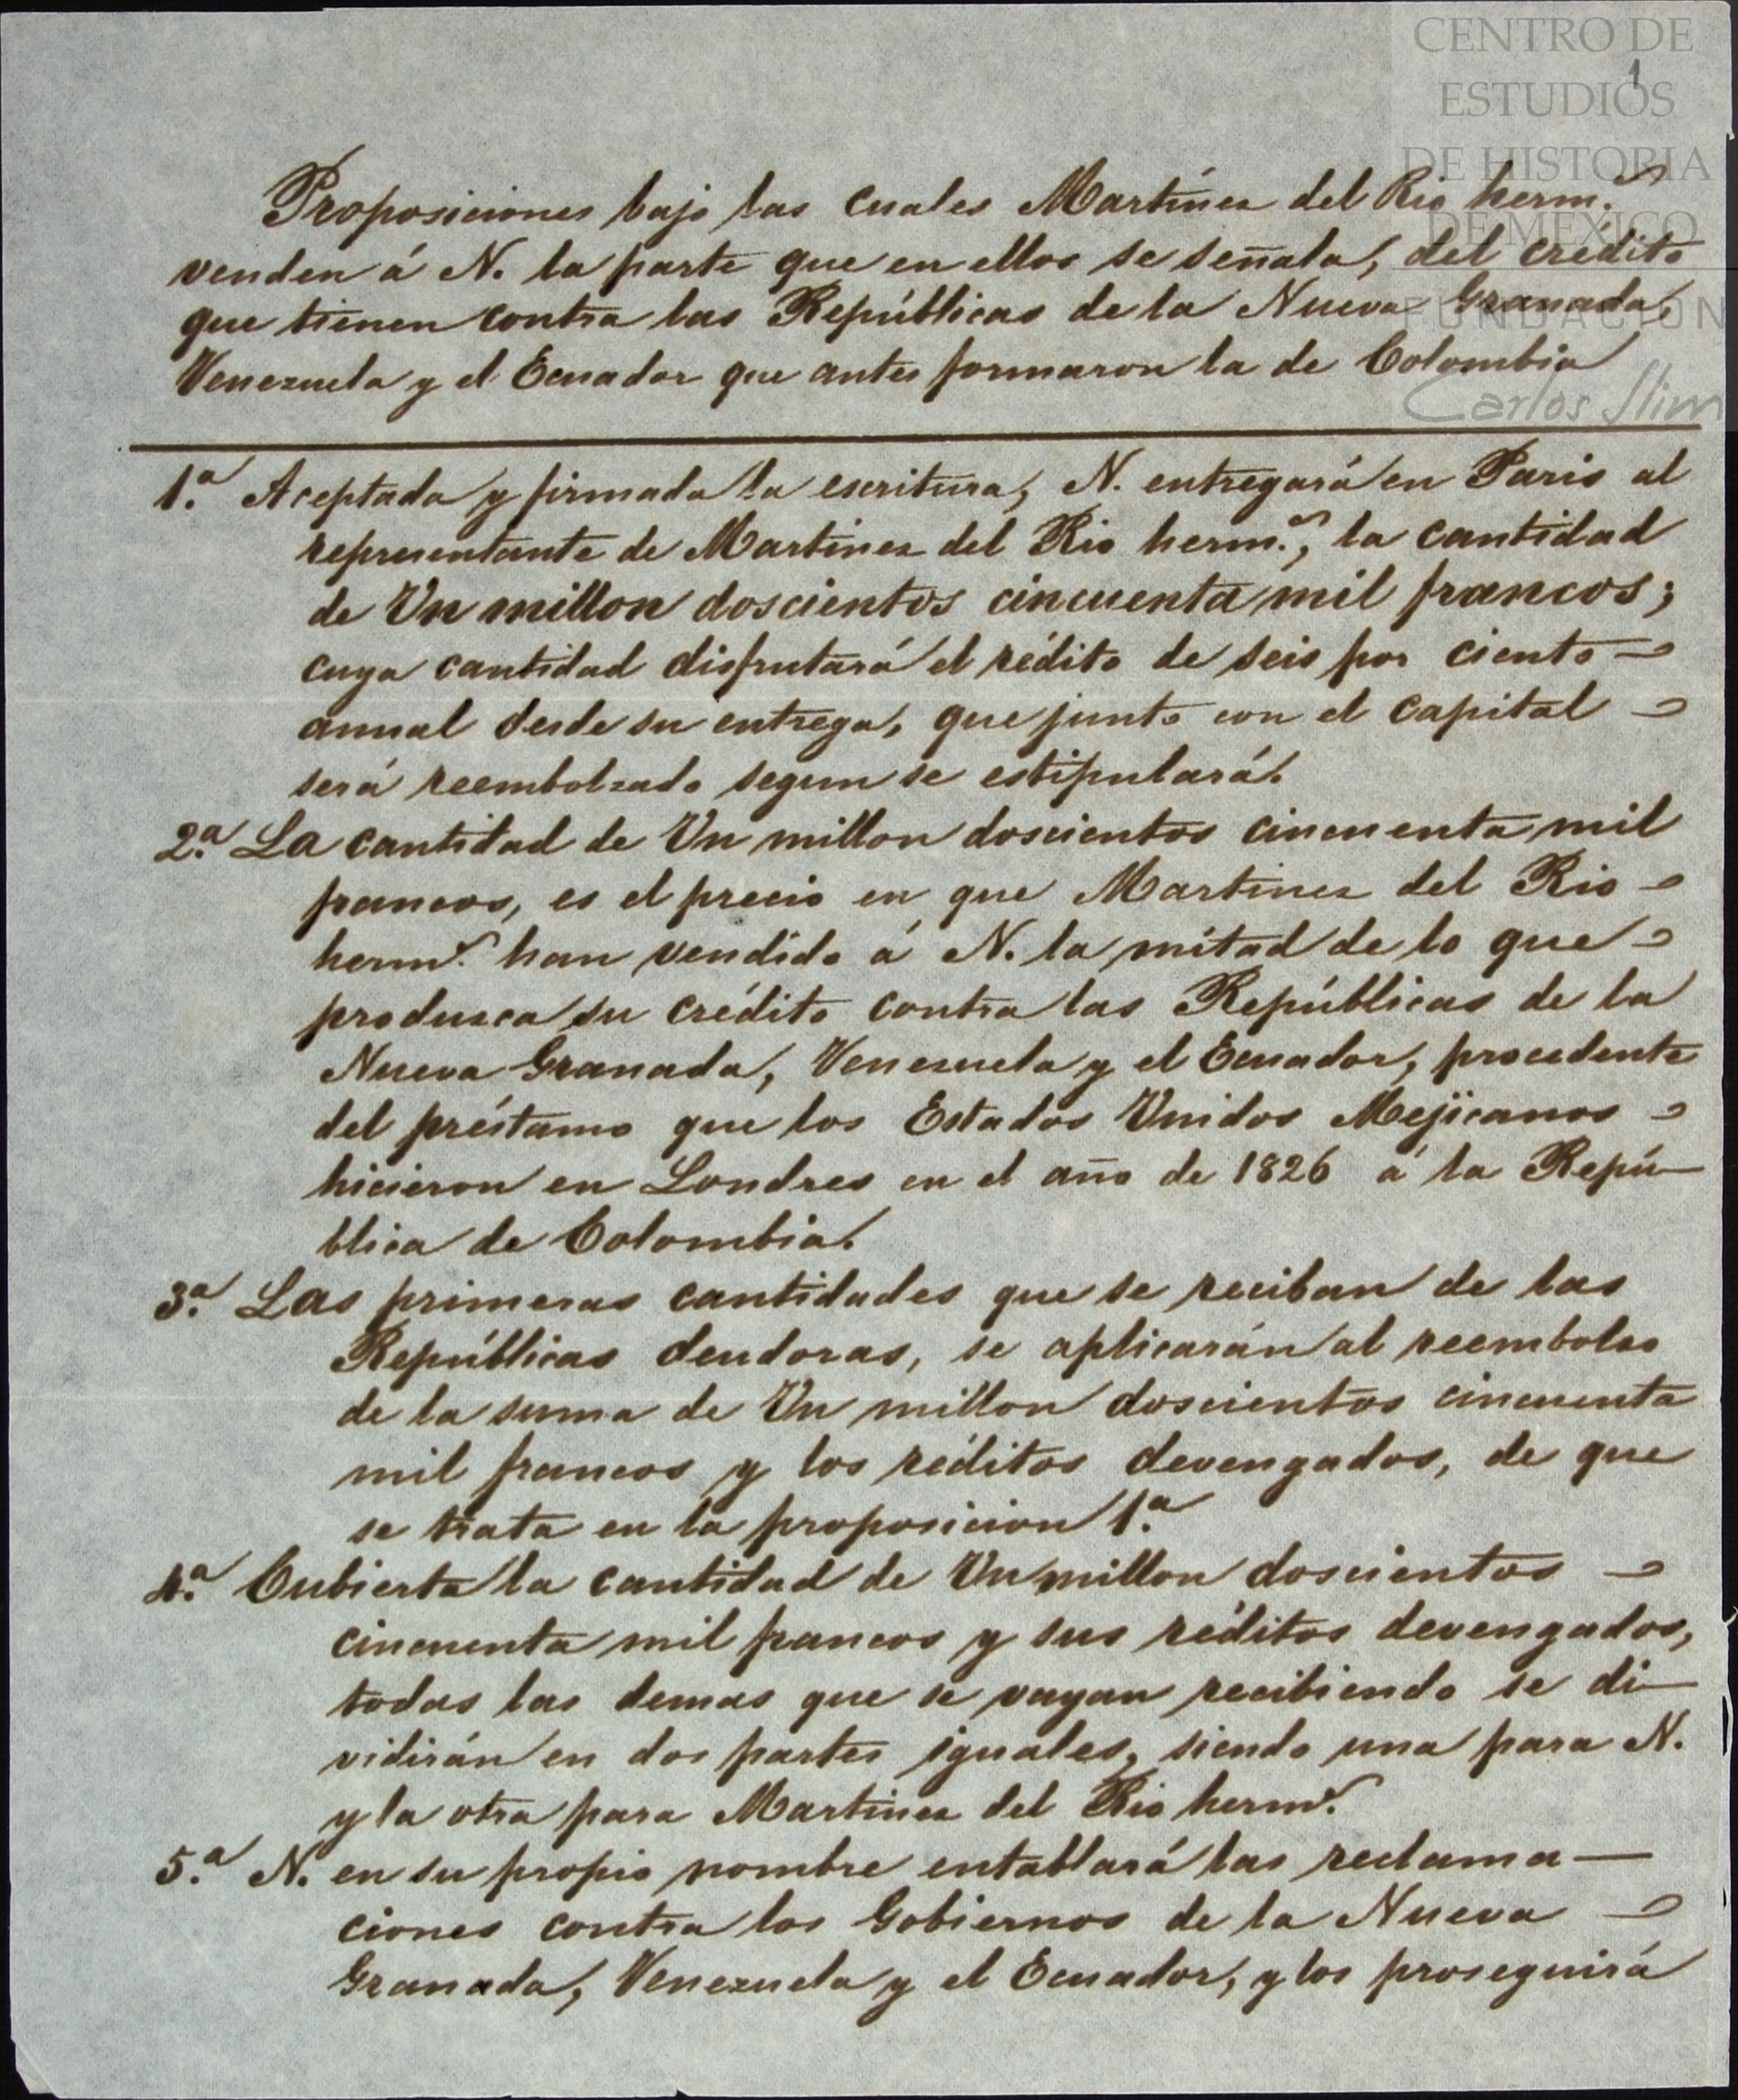 CENTRO DE
ESTUDIOS
DE HISTORIA
DE MÉXICO
FUNDACIÓN
Carlos Slim
1
Proposiciones bajo las cuales Martínez del Rio herm.s
venden á N. la parte que en ellos se señala, del crédito
que tienen contra las Repúblicas de la Nueva Granada,
Venezuela y el Ecuador que antes formaron la de Colombia
1.a Aceptada y firmada la escritura, N. entregará en Paris al
representante de Martinez del Rio herm.s, la cantidad
de Un millon doscientos cincuenta mil francos;
cuya cantidad disfrutará el rédito de seis por ciento
annual desde su entrega, que junto con el capital
será reembolzado segun se estipulará.
2.a La cantidad de Un millon doscientos cincuenta mil
francos, es el precio en que Martinez del Rio
herm.s han vendido á N. la mitad de lo que
produzca su crédito contra las Repúblicas de la
Nueva Granada, Venezuela y el Ecuador, procedente
del préstamo que los Estados Unidos Mejicanos
hicieron en Londres en el año de 1826 á la Repú-
blica de Colombia.
3.a Las primeras cantidades que se reciban de las
Repúblicas deudoras, se aplicarán al reembolso
de la suma de Un millon doscientos cincuenta
mil francos y los réditos devengados, de que
se trata en la proposicion 1.a
4.a Cubierta la cantidad de Un millon doscientos
cincuenta mil francos y sus réditos devengados,
todas las demas que se vayan recibiendo se di-
vidirán en dos partes iguales, siendo una para N.
y la otra para Martinez del Rio herm.s
5.a N. en su propio nombre entablará las reclama-
ciones contra los Gobiernos de la Nueva
Granada, Venezuela y el Ecuador, y los proseguirá